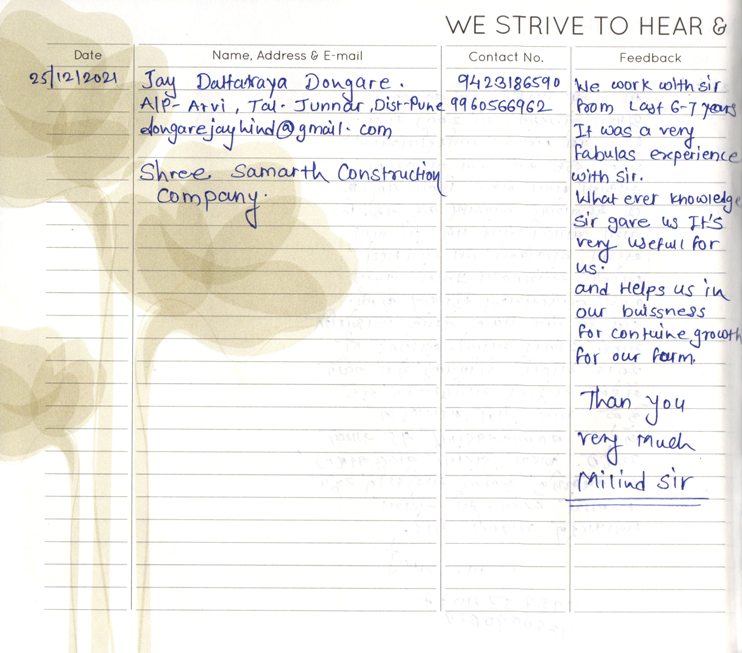 WE STRIVE TO HEAR &
Date
Name, Address & E-mail
Contact No.
Feedback
25/12/2021
Jay Dattatraya Dongare.
A/P- Arvi, Tal. Junnar, Dist-Pune
dongarejayhind@gmail.com
Shree Samarth Construction
Company.
9423186590
9960566962
We work with sir
from Last 6-7 years
It was a very
fabulas experience
with sir.
What ever knowledge
sir gave us It's
very usefull for
us.
and Helps us in
our buissness
for contuine growth
for our farm.
Than you
very much
Milind sir